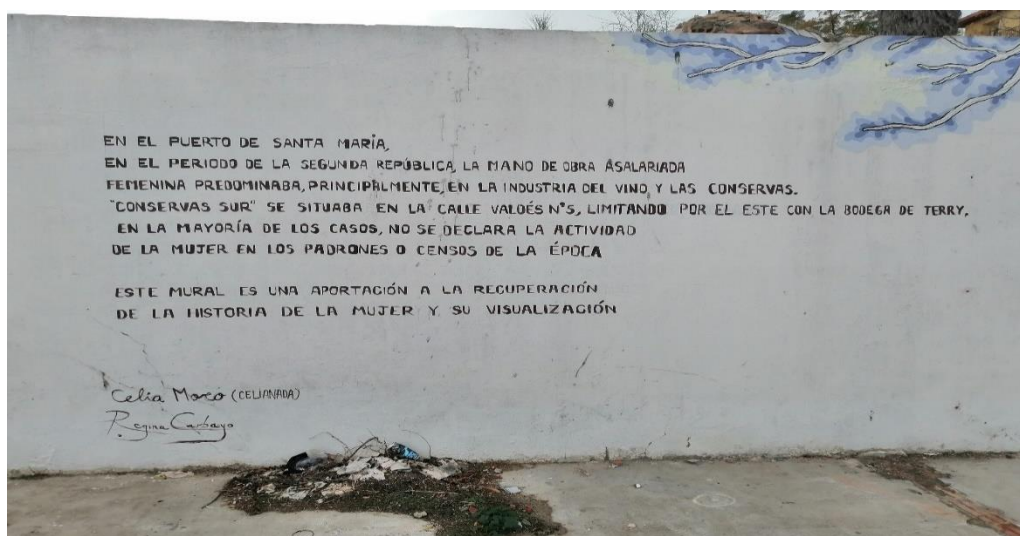 EN EL PUERTO DE SANTA MARÍA,
EN EL PERIODO DE LA SEGUNDA REPÚBLICA, LA MANO DE OBRA ASALARIADA
FEMENINA PREDOMINABA, PRINCIPALMENTE, EN LA INDUSTRIA DEL VINO Y LAS CONSERVAS.
"CONSERVAS SUR" SE SITUABA EN LA CALLE VALDÉS Nº5, LIMITANDO POR EL ESTE CON LA BODEGA DE TERRY.
EN LA MAYORÍA DE LOS CASOS, NO SE DECLARA LA ACTIVIDAD
DE LA MUJER EN LOS PADRONES O CENSOS DE LA ÉPOCA
ESTE MURAL ES UNA APORTACIÓN A LA RECUPERACIÓN
DE LA HISTORIA DE LA MUJER Y SU VISUALIZACIÓN
Celia Moreo (CELIANADA)
Regina Carbayo